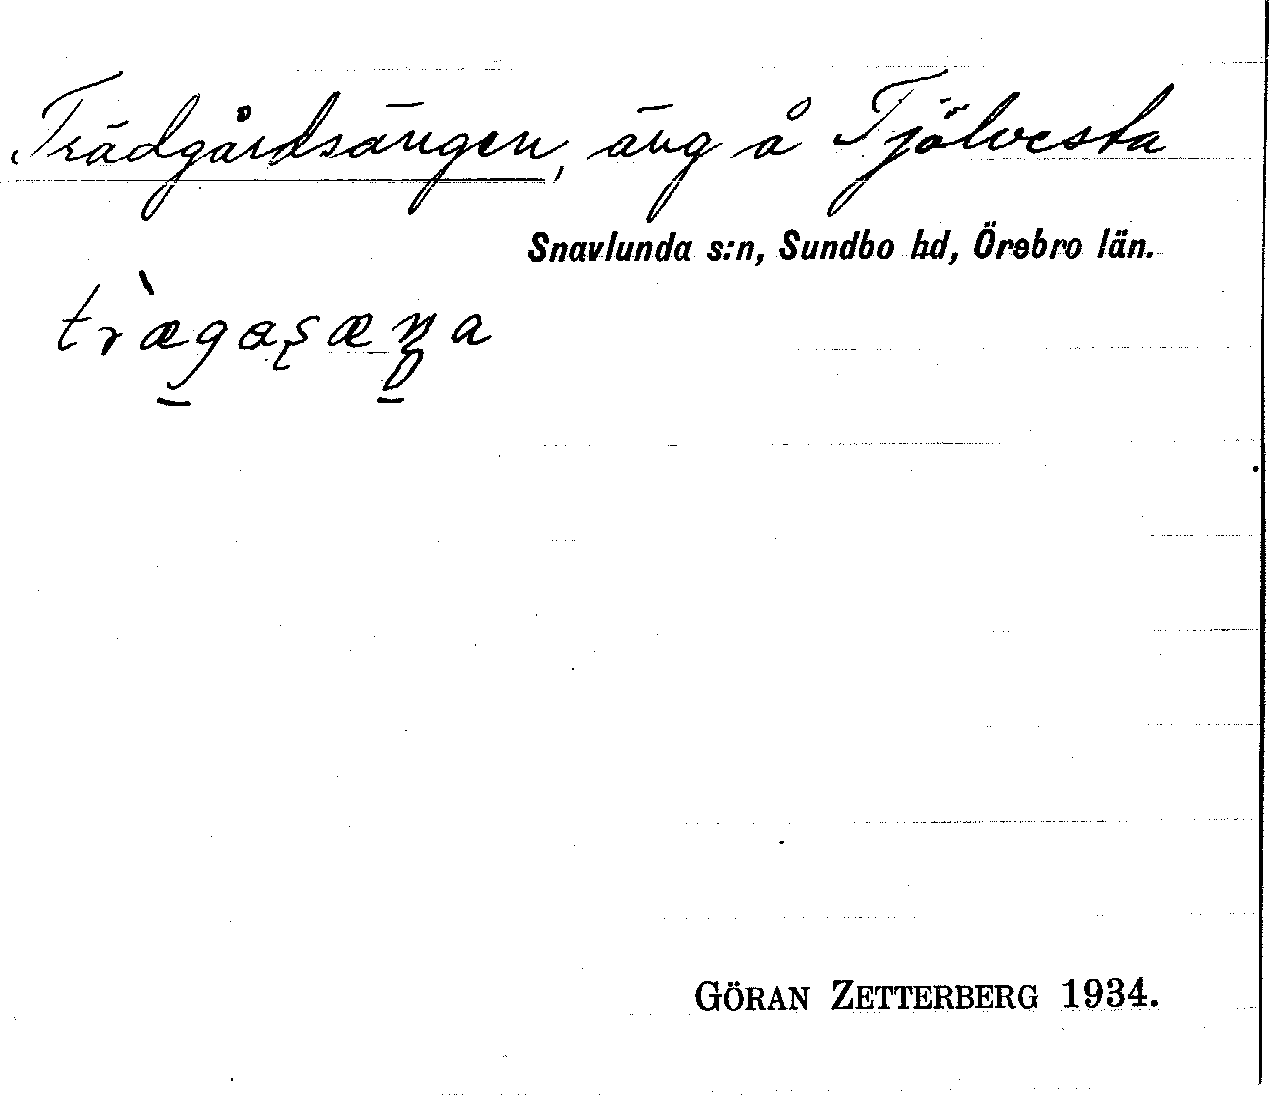 Trädgårdsängen, äng å Tjölvesta
Snavlunda s:n, Sundbo hd, Örebro län.
GÖRAN ZETTERBERG 1934.